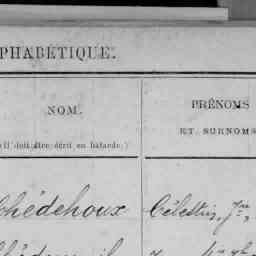 PHABÉTIQUE.
NOM.
PRÉNOMS
(Il doit être écrit en batarde.)
ET SURNOMS
Chédehoux Célestin, J.ne,